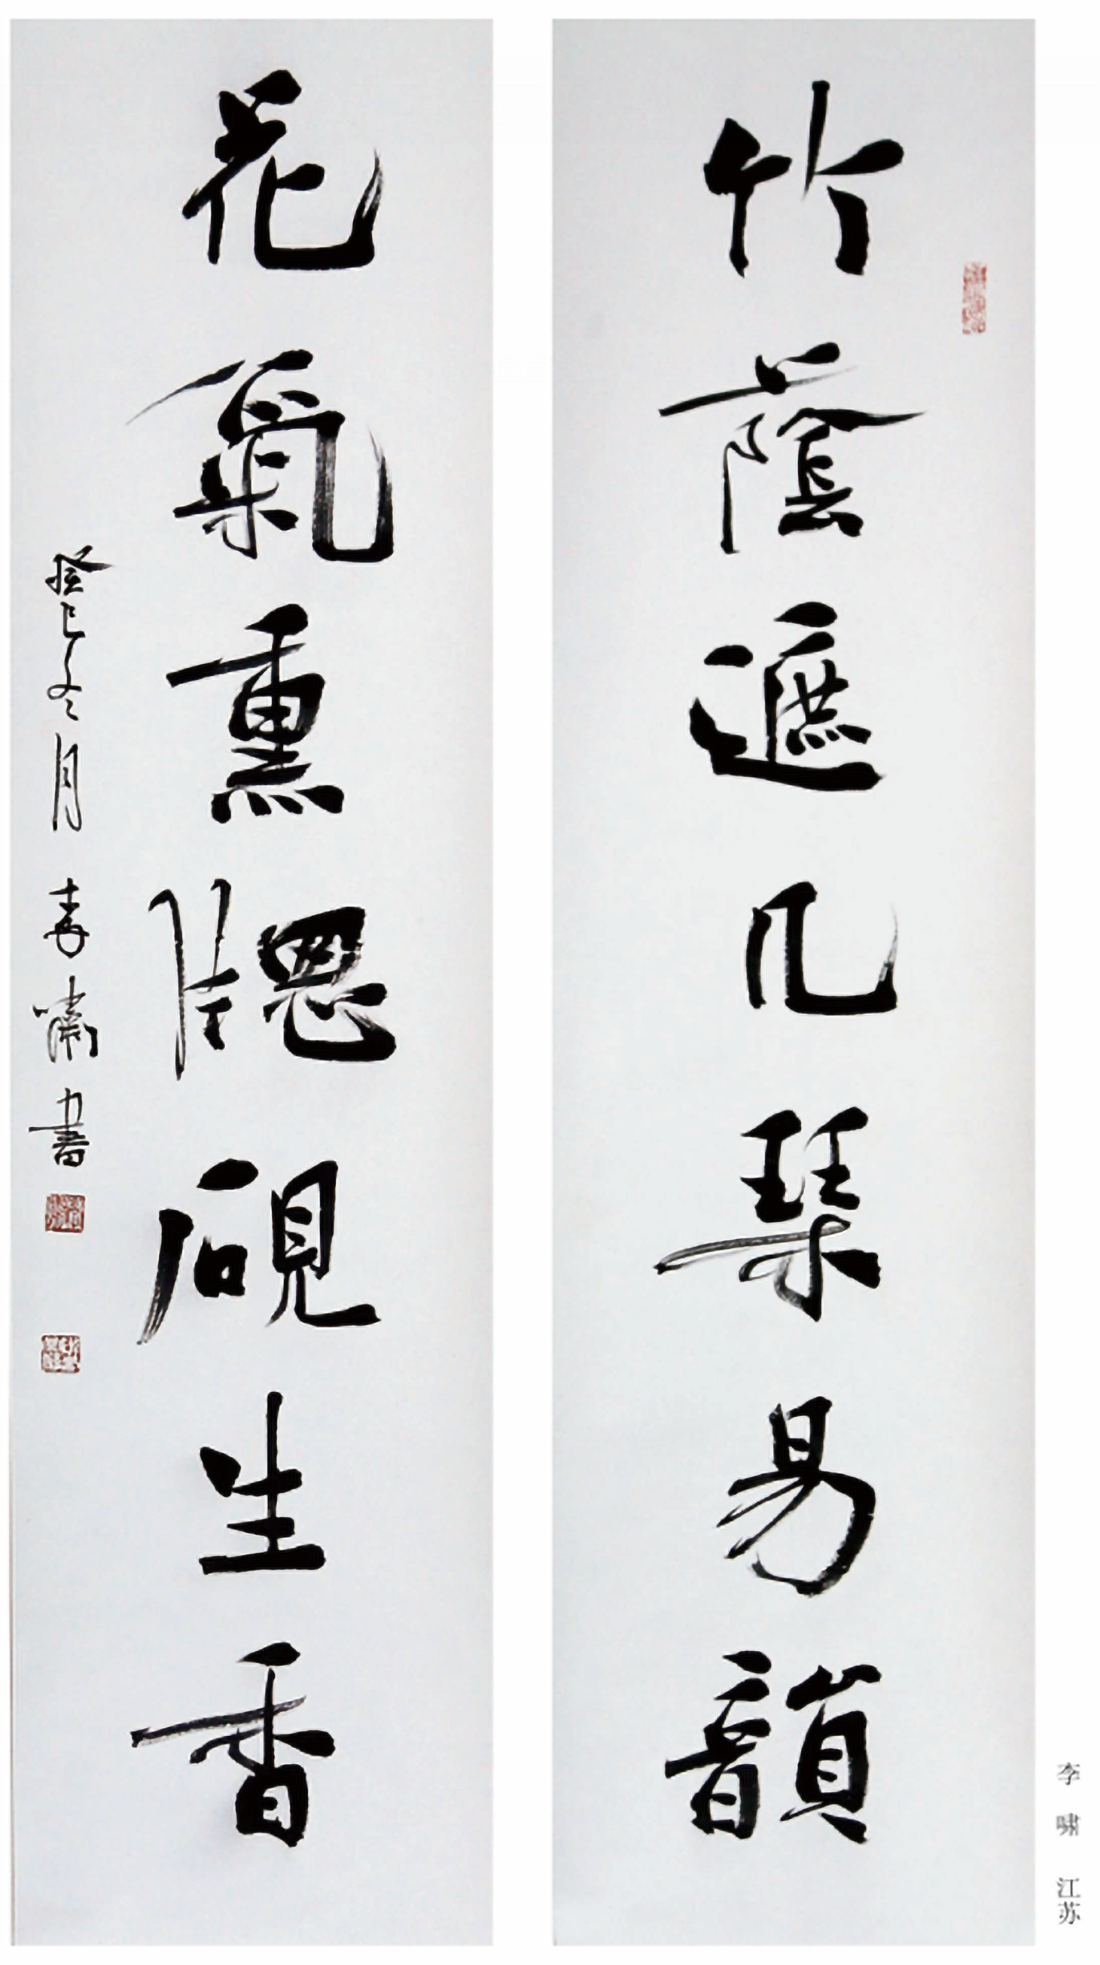 竹蔭遮几琴易韻
花氣熏牕硯生香
癸巳冬月 李嘯書
李啸 江苏